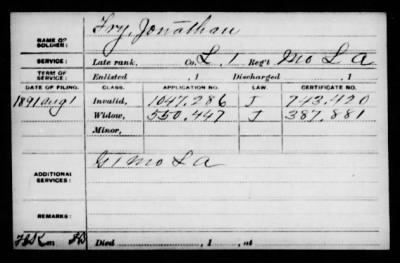 NAME OF SOLDIER: Fry, Jonathan
SERVICE: Late rank, Co. L. 1 Reg't Mo L A
TERM OF SERVICE: Enlisted , 1 Discharged , 1
DATE OF FILING. CLASS. APPLICATION NO. LAW. CERTIFICATE NO.
1891 Aug 1 Invalid, 1047,286 J 743,420
Widow, 550,447 J 387,881
Minor,
ADDITIONAL SERVICES: G 1 Mo L A
REMARKS:
Died , 1 , at